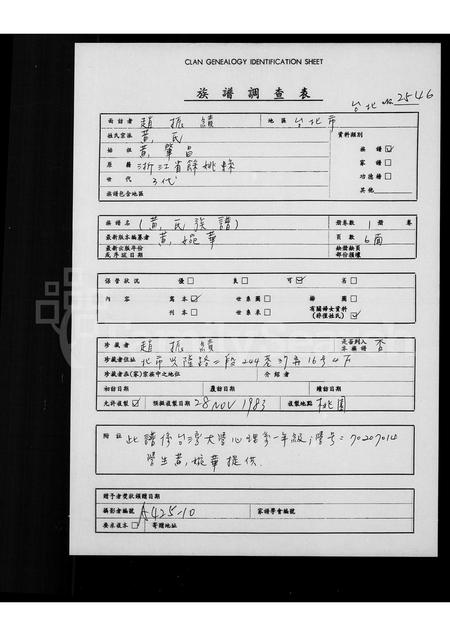 CLAN GENEALOGY IDENTIFICATION SHEET
族譜調查表
台北 No 2546
面訪者 趙振績 地區 台北市
姓氏宗派 黃氏 資料類別
始祖 黃肇昌 族譜 ☑
原籍 浙江省餘姚縣 家譜 □
世代 3代 功德榜 □
族譜包含地區 其他
族譜名 (黃氏族譜) 冊卷數 1 冊 卷
最新版本編纂者 黃婉華 頁數 6面
最新出版年份
或序跋日期
部份損壞
保管狀況 優 □ 良 □ 可 ☑ 劣 □
內容 寫本 ☑ 世系圖 □ 師圖 □
刊本 □ 世系表 □ 有關婦女資料 ☑
珍藏者 趙振績 是否列入本族譜 否
珍藏者住址 北市興隆路二段244巷37弄16号4F
珍藏者在(家)宗族中之地位 介紹者
初訪日期 覆訪日期 續訪日期
允許複製 ☑ 預擬複製日期 28 NOV 1983 複製地點 桃園
附註 此譜係台灣大學心理系一年級,學号=70207014
學生黃婉華提供.
贈予者獎狀頒贈日期
攝影者編號 A425-10 家譜學會編號
要求複本 □ 寄贈地址